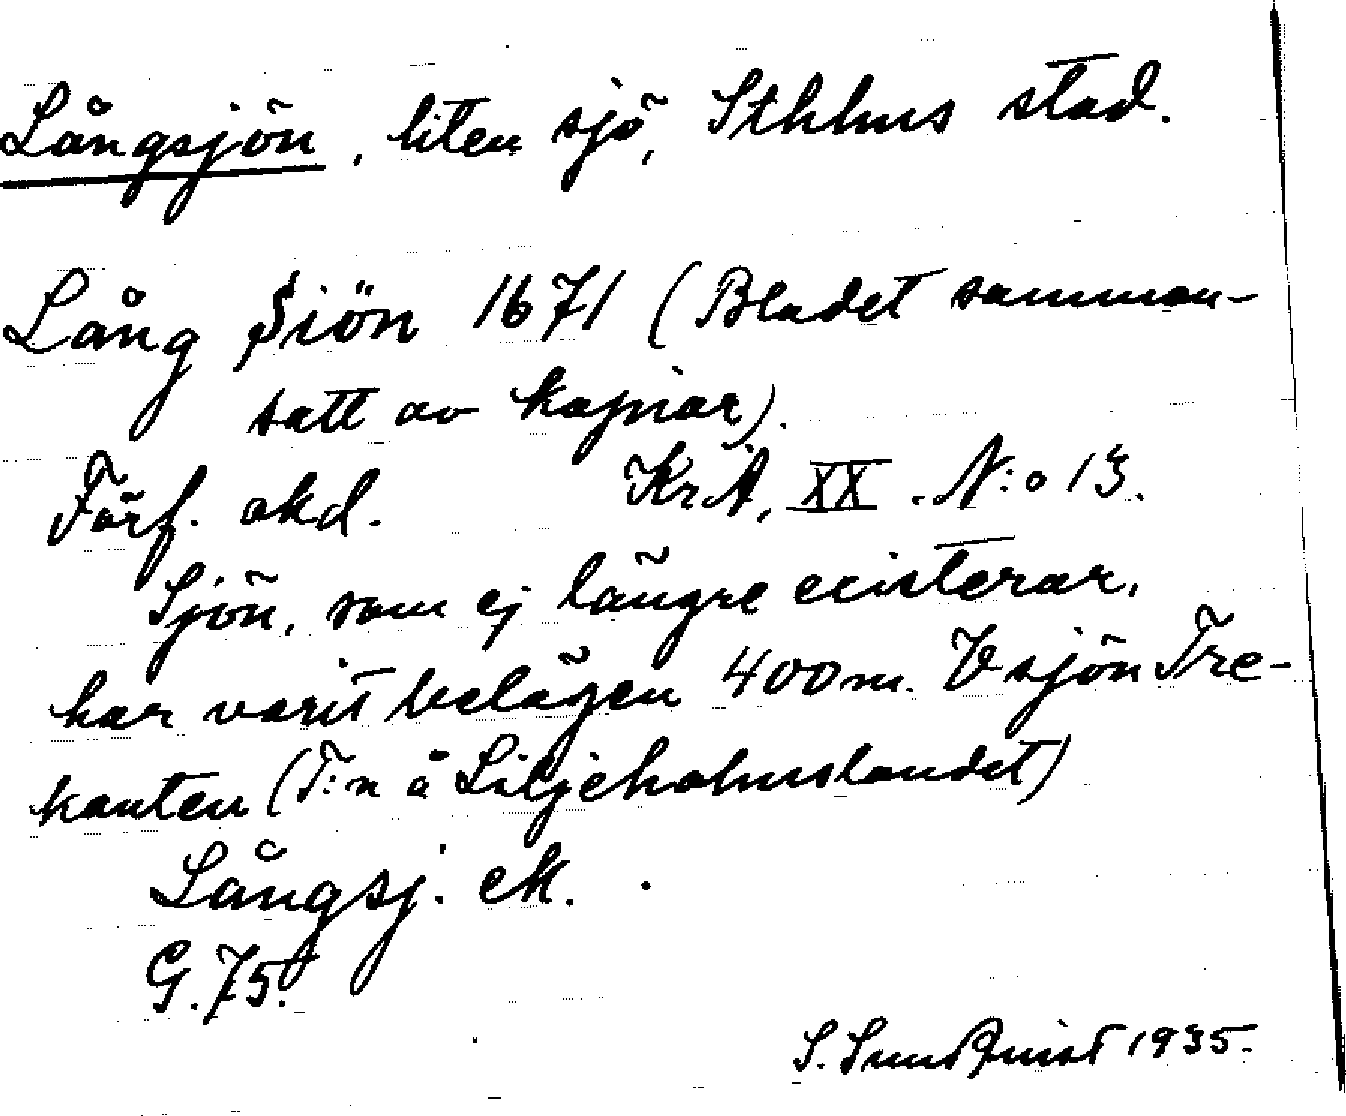 Långsjön, liten sjö, Sthlms stad.
Lång Siön 1671 (Bladet samman-
satt av kopior).
Förf. okd. KrA, XX. N:o 13.
Sjön, som ej längre existerar,
har varit belägen 400 m. V sjön Tre-
kanten (T:n å Liljeholmslandet)
Långsj. ek.
G. 75.
S. Sundquist 1935.